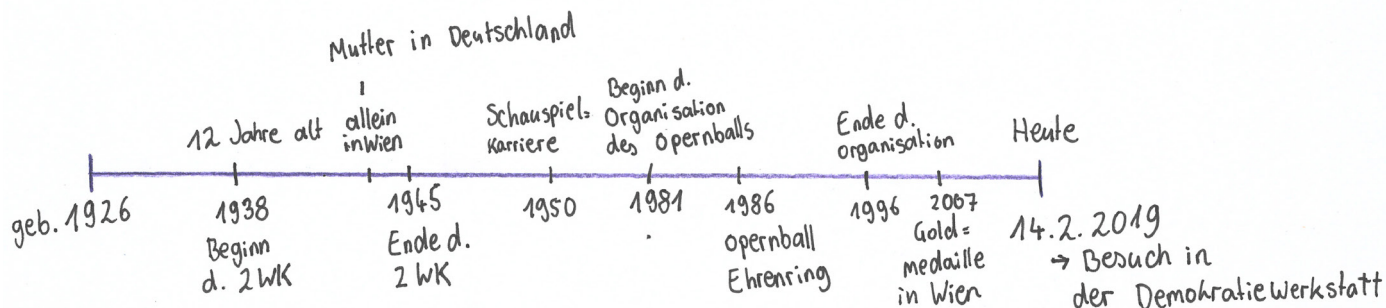 Mutter in Deutschland
12 Jahre alt
allein
in Wien
Schauspiel=
Karriere
Beginn d.
Organisation
des Opernballs
Ende d.
Organisation
Heute
geb. 1926
1938
Beginn
d. 2WK
1945
Ende d.
2 WK
1950
1981
1986
Opernball
Ehrenring
1996
2007
Gold=
medaille
in Wien
14.2.2019
→ Besuch in
der Demokratiewerkstatt